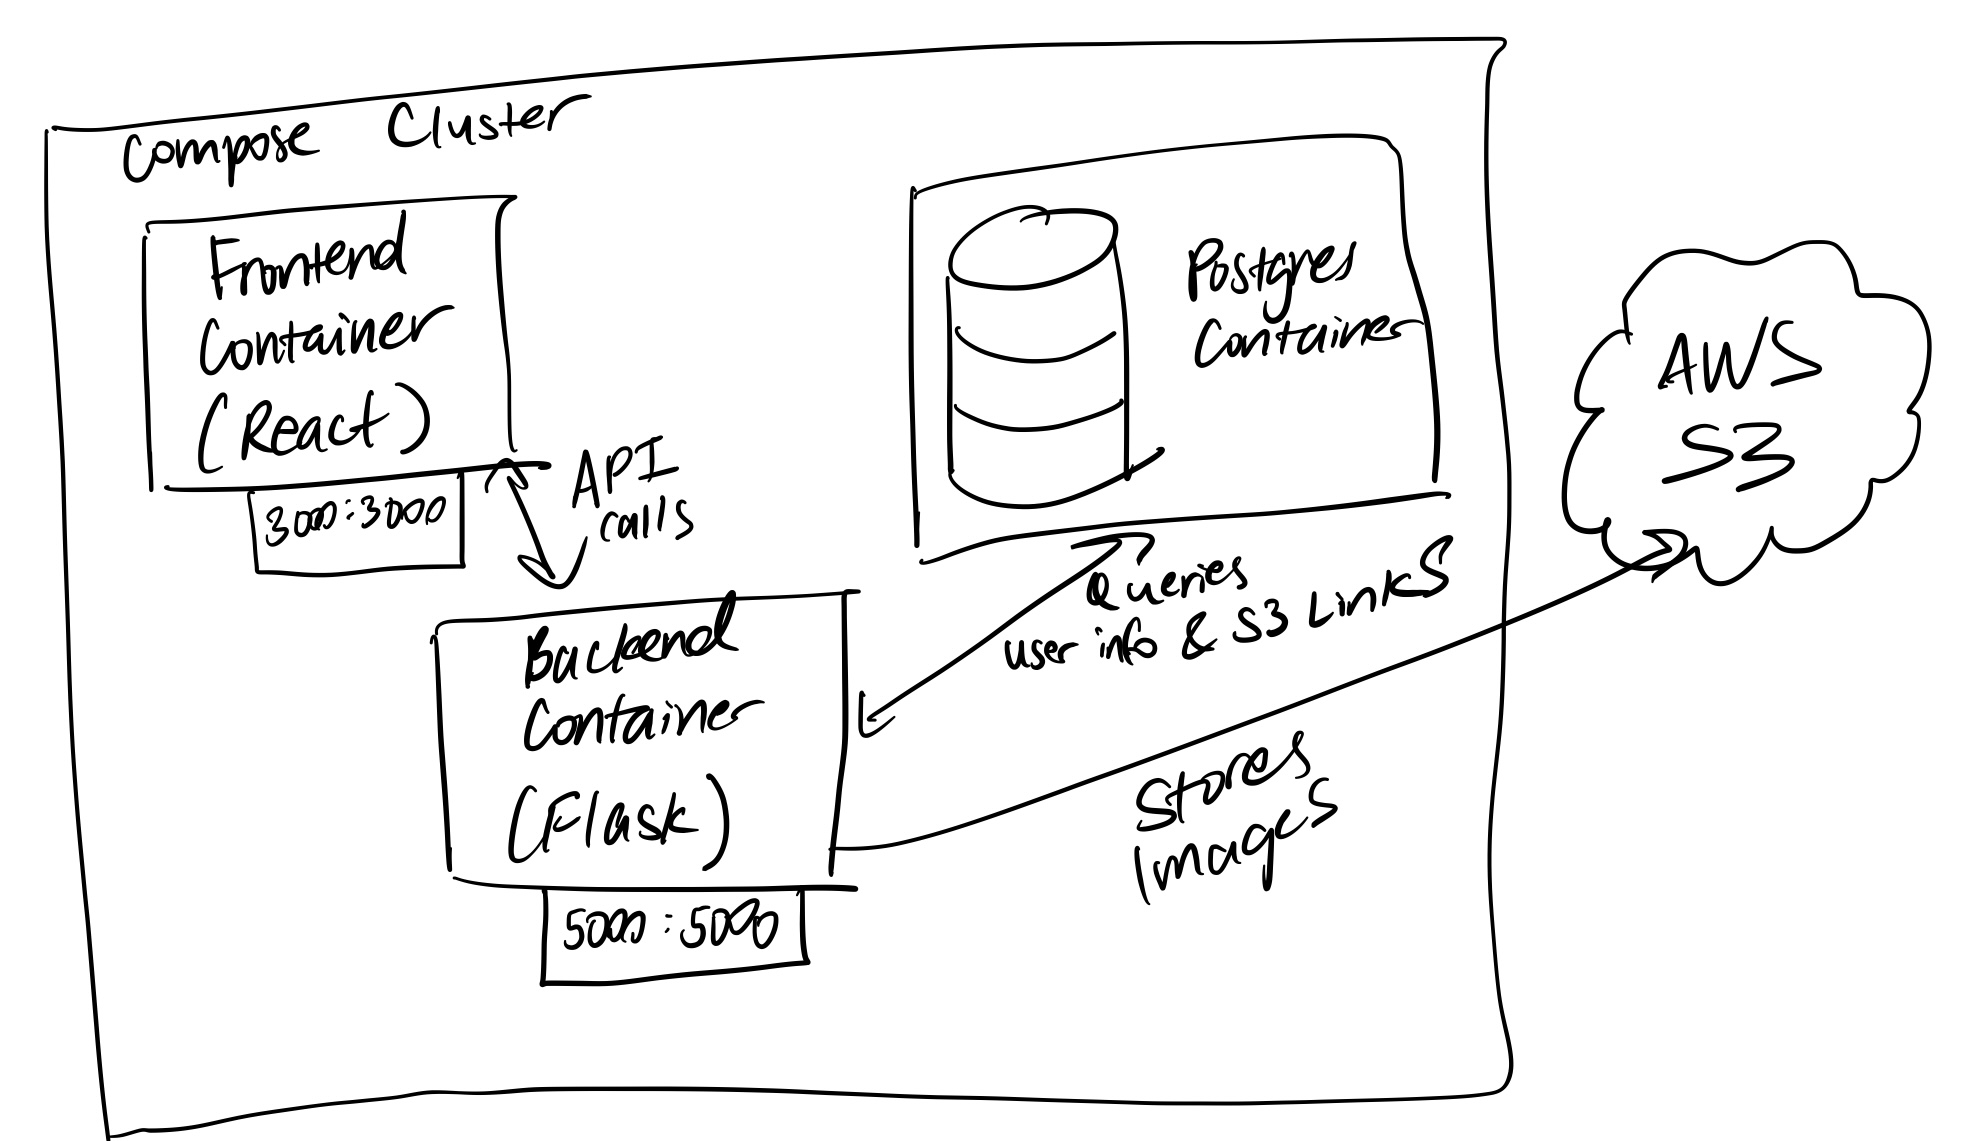 Compose Cluster
Frontend
Container
(React)
3000:3000
API
calls
Postgres
Container
AWS
S3
Queries
user info & S3 Links
Backend
Container
(Flask)
5000:5000
Stores
Images